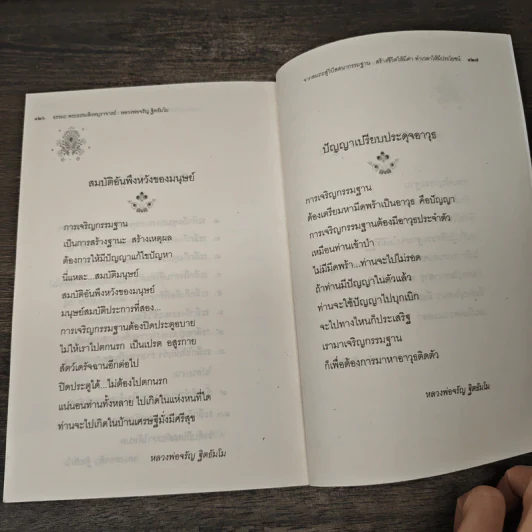 ๑๒๖ ธรรมะ พระธรรมสิงหบุราจารย์ : หลวงพ่อจรัญ ฐิตธัมโม
สมบัติอันพึงหวังของมนุษย์
การเจริญกรรมฐาน
เป็นการสร้างฐานะ สร้างเหตุผล
ต้องการให้มีปัญญาแก้ไขปัญหา
นี่แหละ...สมบัติมนุษย์
สมบัติอันพึงหวังของมนุษย์
มนุษย์สมบัติประการที่สอง...
การเจริญกรรมฐานต้องปิดประตูอบาย
ไม่ให้เราไปตกนรก เป็นเปรต อสุรกาย
สัตว์เดรัจฉานอีกต่อไป
ปิดประตูได้...ไม่ต้องไปตกนรก
แน่นอนท่านทั้งหลาย ไปเกิดในแห่งหนที่ใด
ท่านจะไปเกิดในบ้านเศรษฐีมั่งมีศรีสุข
หลวงพ่อจรัญ ฐิตธัมโม
จากสมถะสู่วิปัสสนากรรมฐาน : สร้างชีวิตให้มีค่า ทำเวลาให้มีประโยชน์ ๑๒๗
ปัญญาเปรียบประดุจอาวุธ
การเจริญกรรมฐาน
ต้องเตรียมหามีดพร้าเป็นอาวุธ คือปัญญา
การเจริญกรรมฐานต้องมีอาวุธประจำตัว
เหมือนท่านเข้าป่า
ไม่มีมีดพร้า...ท่านจะไปไม่รอด
ถ้าท่านมีปัญญาในตัวแล้ว
ท่านจะใช้ปัญญาไปบุกเบิก
จะไปทางไหนก็ประเสริฐ
เรามาเจริญกรรมฐาน
ก็เพื่อต้องการมาหาอาวุธติดตัว
หลวงพ่อจรัญ ฐิตธัมโม